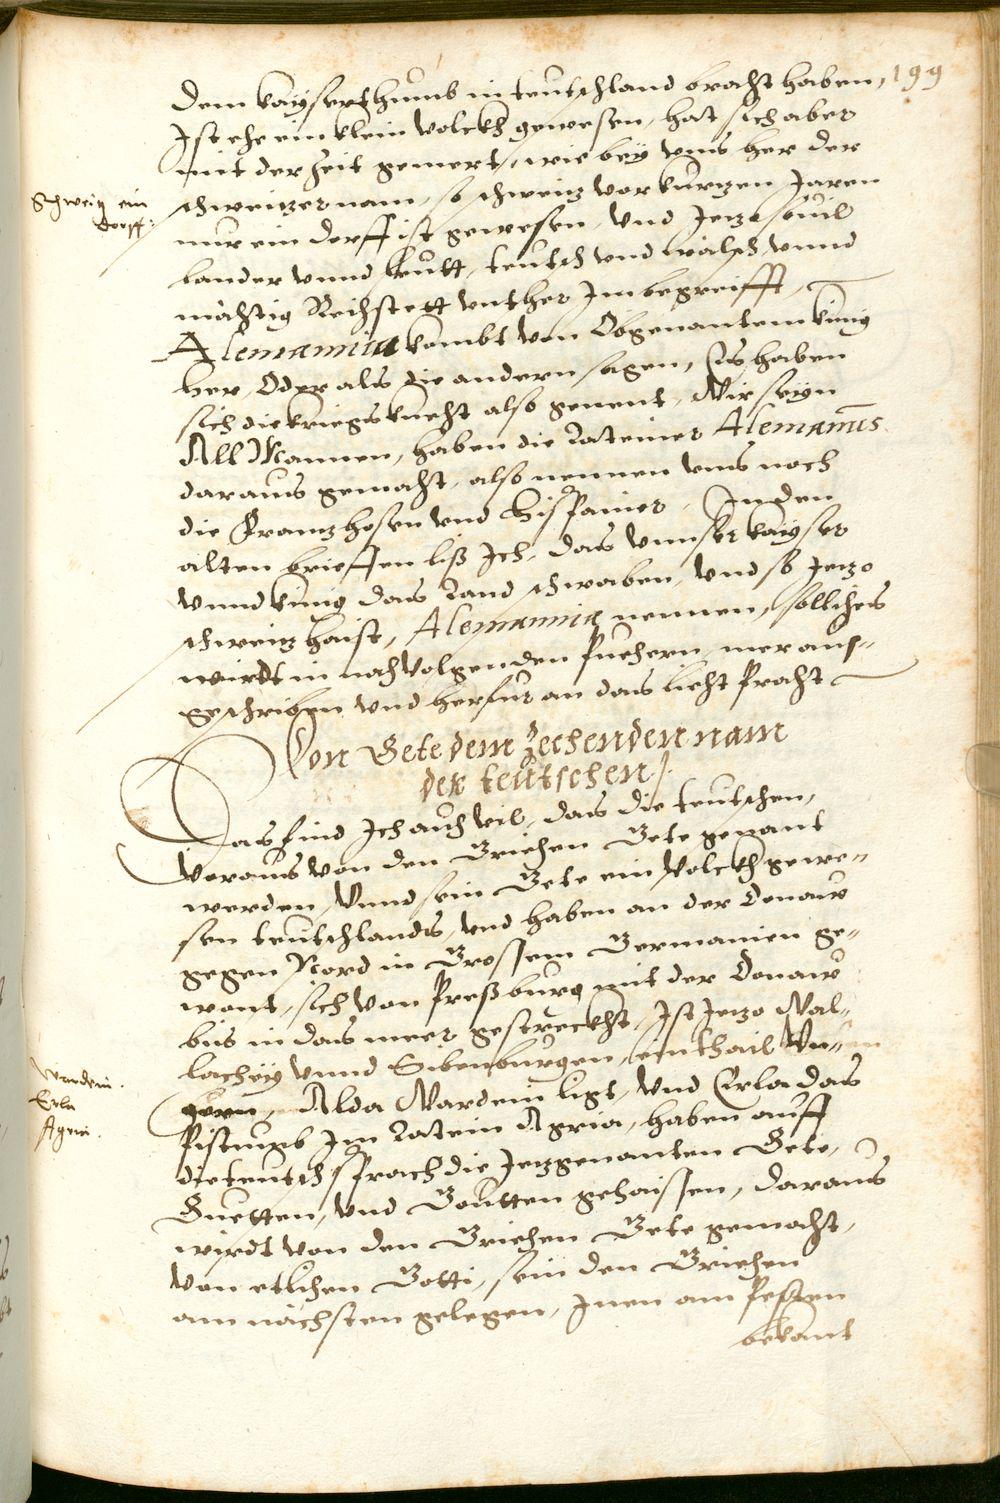 199
dem kaÿserthumb in teutschland bracht haben,
Ist ehe ein klein volckh gewesen, hat sich aber
mit der zeit gemert, wie beÿ vns her der
schweitzer nam, so schweitz vor kurtzen Jaren
Schweitz ein
dorff:
nur ein dorff ist gewesen, vnd Jetzo souil
lander vnnd leutt, teutsch vnd wälsch vnnd
mächtig Reichstett vnther Im begreifft,
Alemannia kombt von Obgenantem künig
her, Oder als die andern sagen, Es haben
sich die kriegsknecht also genent, Wir seÿn
All Mannen, haben die Lateiner Alemanus
daraus gemacht, also nennen vns noch
die Frantzhosen vnd Hispanier, In den
alten brieffen liß Ich, das vnnser kaÿser
vnnd künig das Land schwaben, vnd so Jetzo
schweitz haist, Alemannia nennen, solliches
wirdt in nachvolgenden puchern mer aus=
geschriben vnd herfur an das liecht pracht
Von Gete dem Zechenden nam
der teutschen /.
Das find Ich auch vil, das die teutschen,
voraus von den Griechen Gete genant
werden, Vnnd sein Gete ein Volckh gewe=
sen teutschlands, vnd haben an der Donaw
gegen Nord in Grossem Germanien ge=
wont, sich von Preßburg mit der Donaw
bis in das meer gestreckht, Ist Jetzo Wal=
lacheÿ vnnd Sibenburgen, ein thail Vn=
Wardein.
Erla
Agria.
gern, Alda Wardein ligt, vnd Erla das
Pistumb Im Latein Agria, haben auff
die teutsch sprach die Jetzgenanten Gete,
Guetten, vnd Goutten gehaissen, daraus
wirdt von den Griechen Gete gemacht,
von etlichen Gotti, sein den Griechen
am nächsten gelegen, Inen am Pesten
bekant